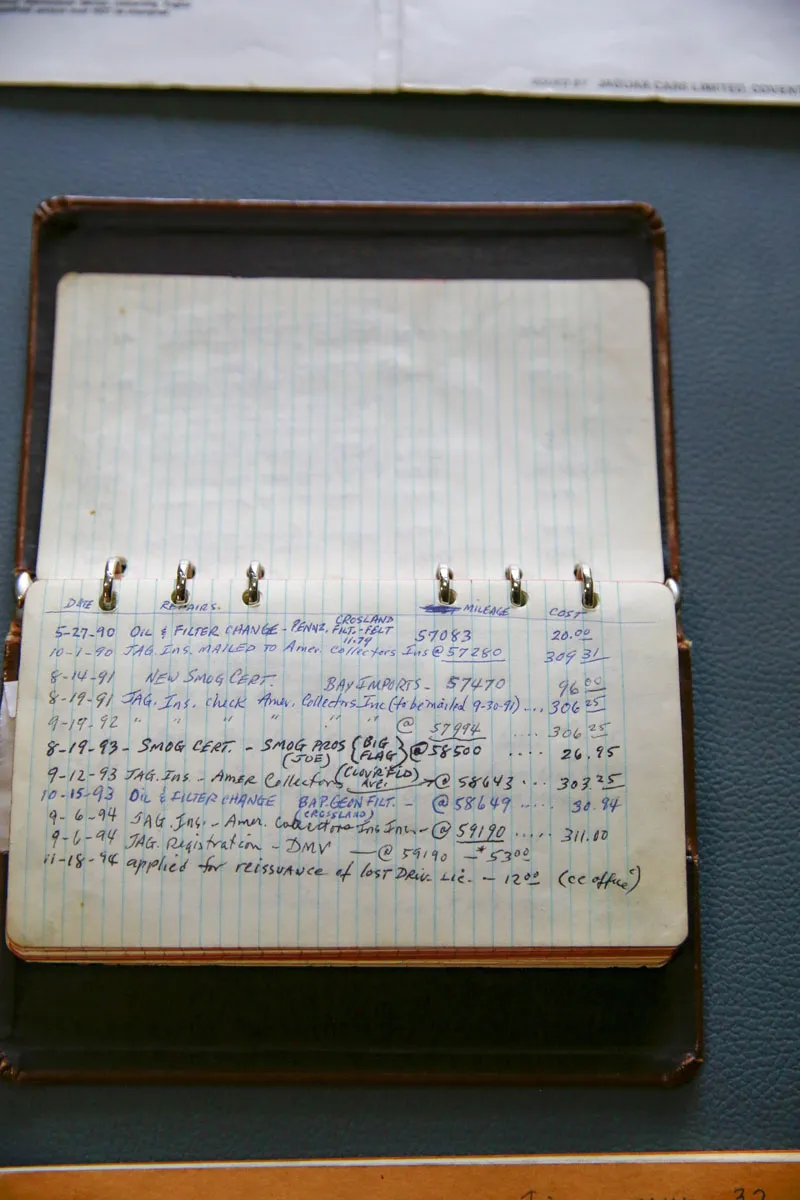 ISSUED BY JAGUAR CARS LIMITED, COVENT
DATE REPAIRS. MILEAGE COST
5-27-90 OIL & FILTER CHANGE - PENNZ. CROSLAND FILT.-FELT 11.79 57083 20.00
10-1-90 JAG. Ins. MAILED to Amer. Collectors Ins @ 57280 309 31
8-14-91 NEW SMOG CERT. BAY IMPORTS - 57470 96 00
8-19-91 JAG. Ins. check Amer. Collectors Inc (to be mailed 9-30-91) ... 306 25
9-17-92 " " " " " " @ 57994 .... 306 25
8-19-93 - SMOG CERT. - SMOG PROS (JOE) {BIG FLAG} @ 58500 .... 26.95
9-12-93 JAG. Ins. - Amer Collectors (CLOVRFLD AVE.) @ 58643 ... 303.25
10-15-93 OIL & FILTER CHANGE BAP.GEON FILT. - (CROSSLAND) @ 58649 ..... 30.94
9-6-94 JAG. Ins. - Amer. Collectors Ins Inc. - @ 59190 ..... 311.00
9-6-94 JAG. Registration - DMV — @ 59190 — * 53 00
11-18-94 applied for reissuance of lost Driv. Lic. - 12 00 (cc office)